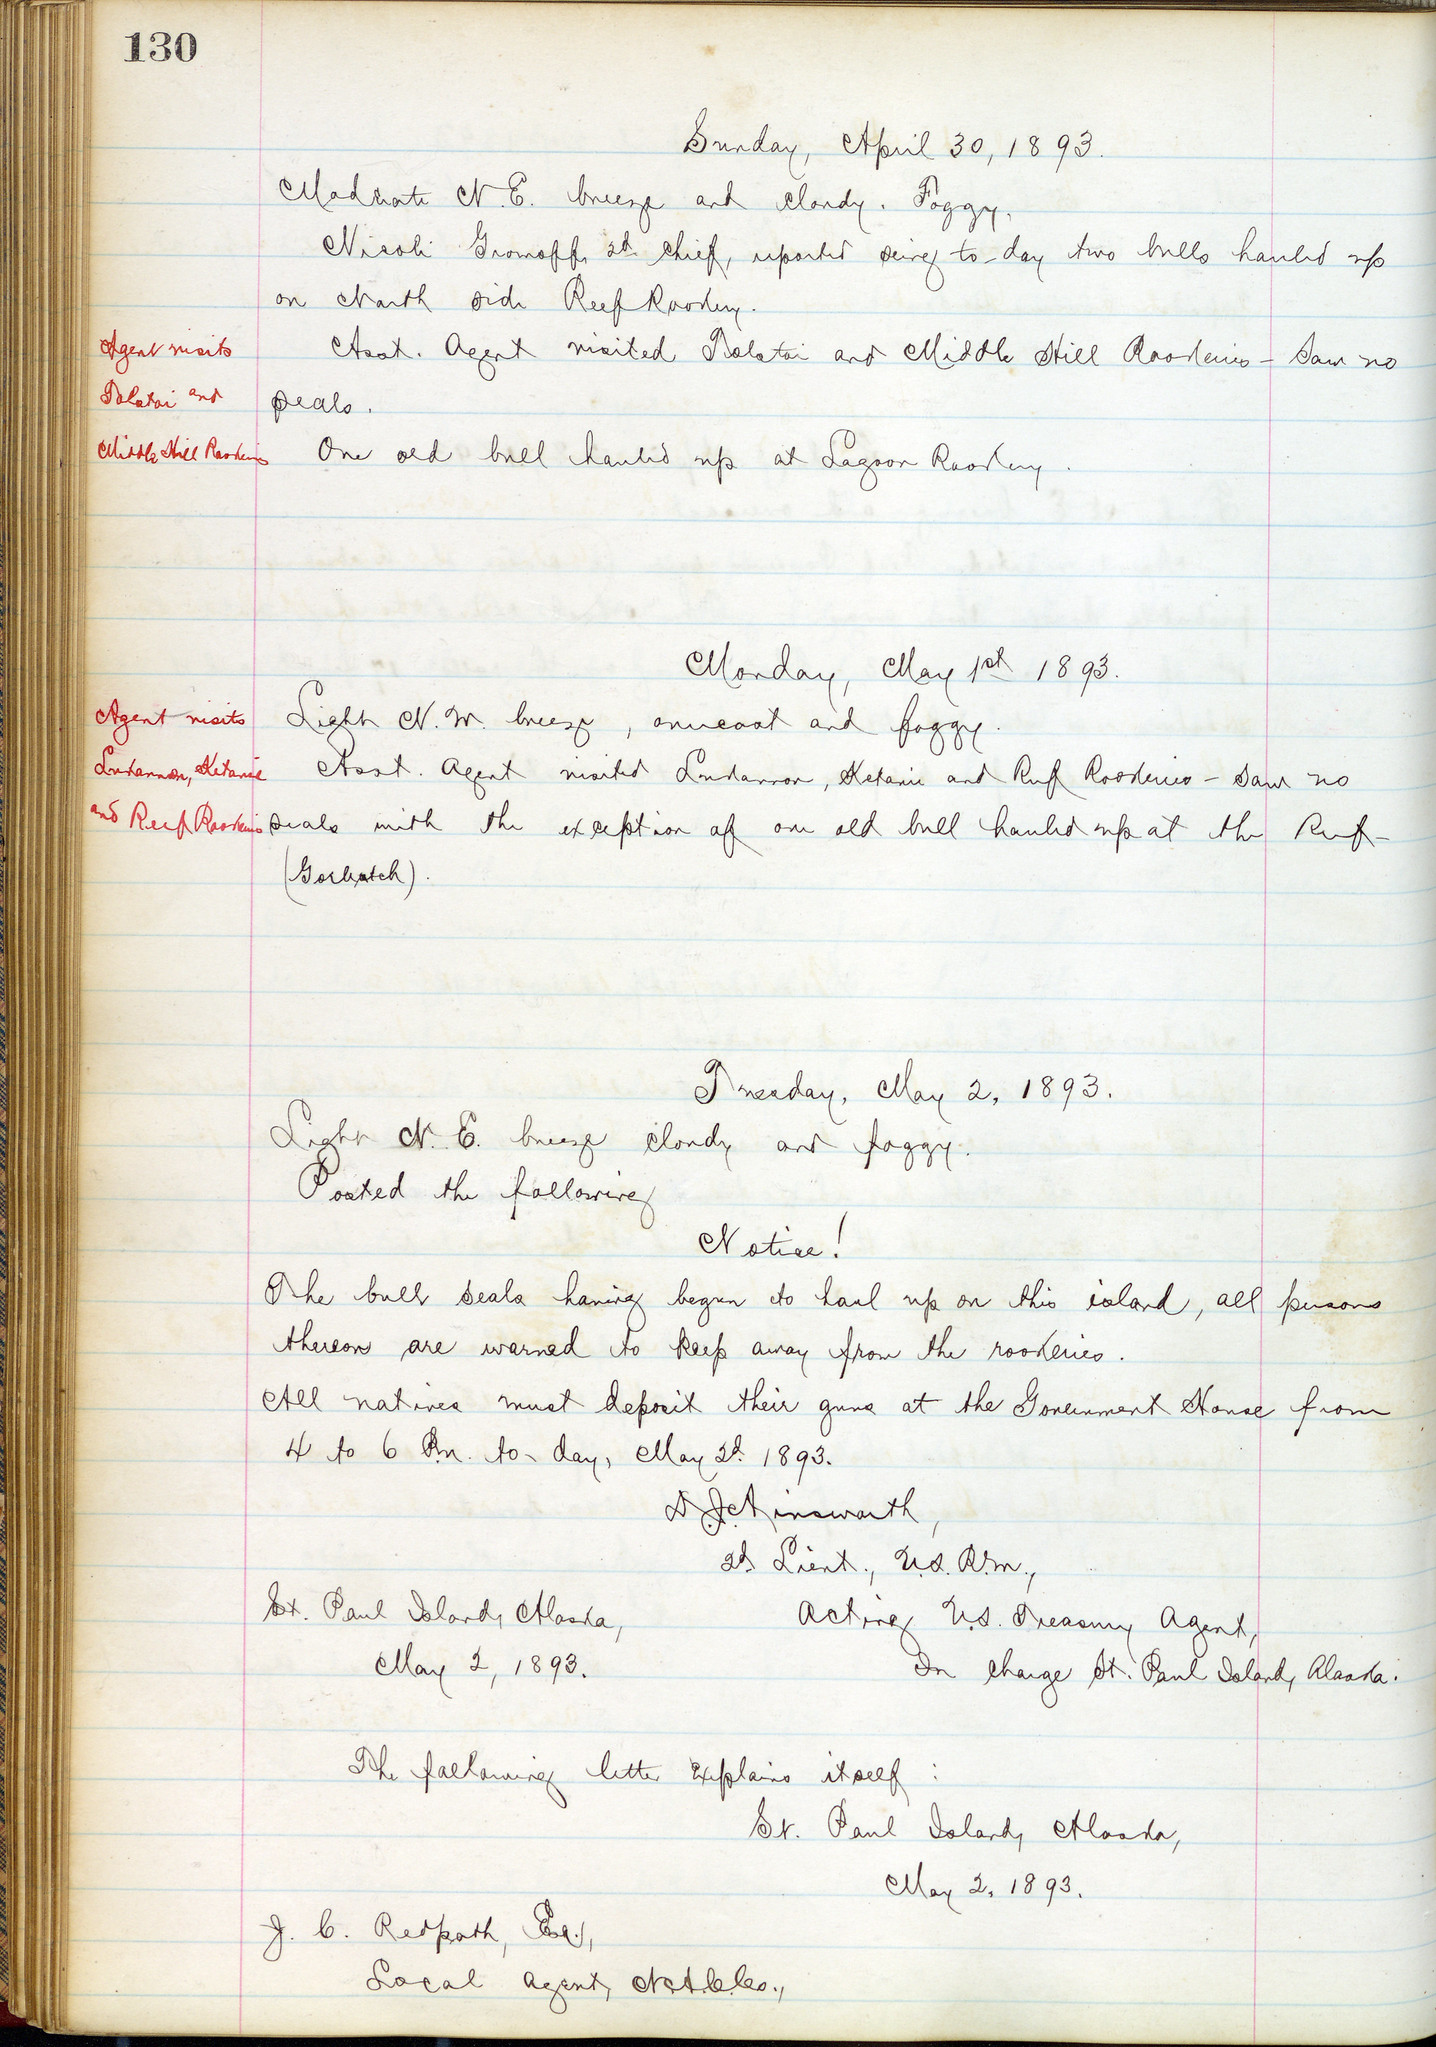 130
Sunday, April 30, 1893.
Moderate N.E. breeze and cloudy. Foggy.
Nicoli Gromoff, 2d chief, reported seeing to-day two bulls hauled up
on North side Reef Rookery.
Agent visits
Tolstoi and
Middle Hill Rookeries
Asst. Agent visited Tolstoi and Middle Hill Rookeries - Saw no
seals.
One old bull hauled up at Lagoon Rookery.
Monday, May 1st 1893.
Agent visits
Lukannon, Ketavie
and Reef Rookeries
Light N.W. breeze, overcast and foggy.
Asst. Agent visited Lukannon, Ketavie and Reef Rookeries - Saw no
seals with the exception of one old bull hauled up at the Reef -
(Gorbatch).
Tuesday, May 2, 1893.
Light N.E. breeze cloudy and foggy.
Posted the following
Notice!
The bull seals having begun to haul up on this island, all persons
thereon are warned to keep away from the rookeries.
All natives must deposit their guns at the Government House from
4 to 6 P.m. to-day, May 2d. 1893.
D. J. Ainsworth,
2d Lieut., U.S.R.M.,
St. Paul Island, Alaska,
May 2, 1893.
Acting U.S. Treasury Agent,
In charge St. Paul Island, Alaska.
The following letter explains itself:
St. Paul Island, Alaska,
May 2, 1893.
J. C. Redpath, Esq.,
Local Agent, N.A.C.Co.,